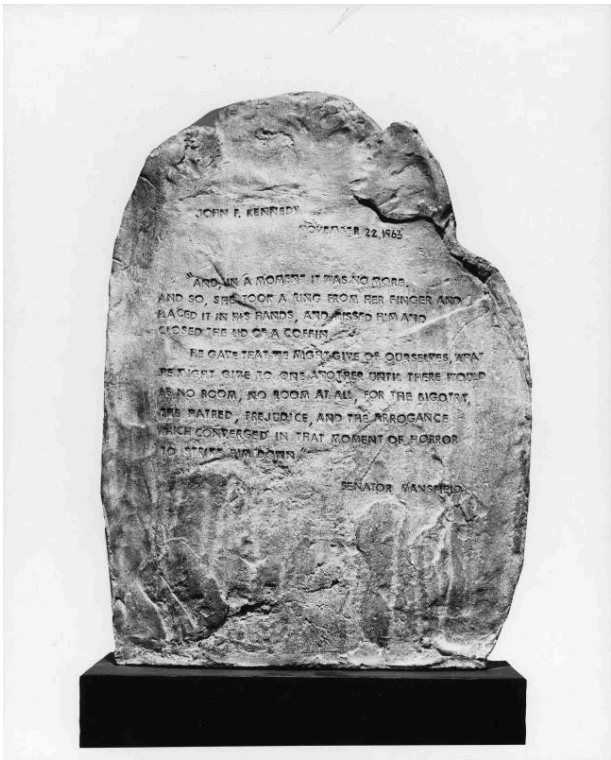 JOHN F. KENNEDY
NOVEMBER 22, 1963
"AND, IN A MOMENT IT WAS NO MORE.
AND SO, SHE TOOK A RING FROM HER FINGER AND
PLACED IT IN HIS HANDS, AND KISSED HIM AND
CLOSED THE LID OF A COFFIN.
HE GAVE THAT WE MIGHT GIVE OF OURSELVES, THAT
WE MIGHT GIVE TO ONE ANOTHER UNTIL THERE WOULD
BE NO ROOM, NO ROOM AT ALL, FOR THE BIGOTRY,
THE HATRED, PREJUDICE, AND THE ARROGANCE
WHICH CONVERGED IN THAT MOMENT OF HORROR
TO STRIKE HIM DOWN."
SENATOR MANSFIELD